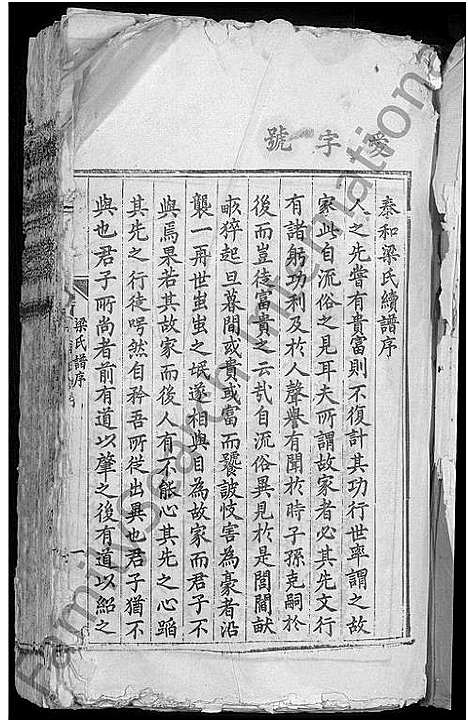 愛字號
泰和梁氏續譜序
人之先嘗有貴富則不復計其功行世率謂之故
家此自流俗之見耳夫所謂故家者必其先文行
有諸躬功利及於人聲譽有聞於時子孫克嗣於
後而豈徒富貴之云哉自流俗異見於是閭閻畎
畝猝起旦暮間或貴或富而饕詖忮害為豪者沿
襲一再世蚩蚩之氓遂相與目為故家而君子不
與焉果若其故家而後人有不能心其先之心蹈
其先之行徒咢然自矜吾所從出異也君子猶不
與也君子所尚者前有道以肇之後有道以紹之
梁氏譜序
一
FamilySearch International